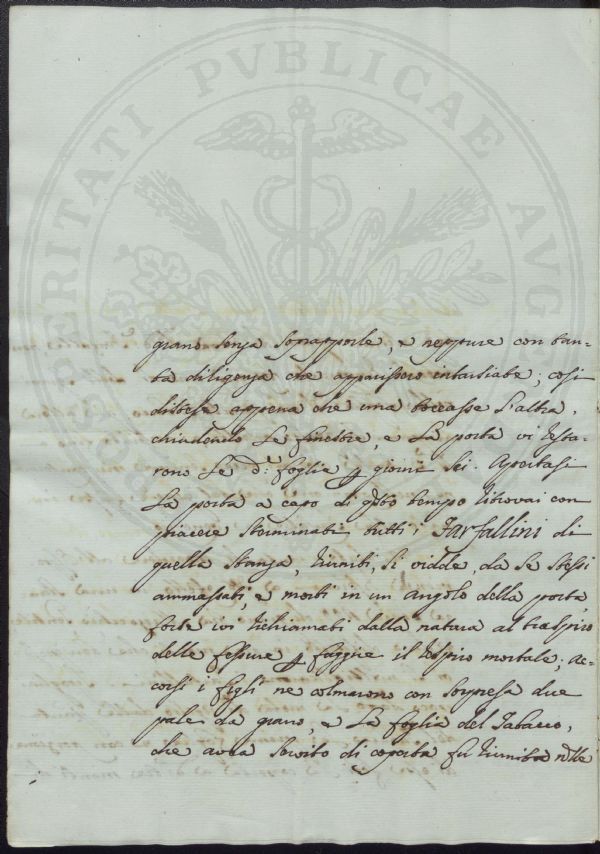 PROSPERITATI PVBLICAE AVG
grano senza sopraporle, e neppure con tan-
ta diligenza che apparissero intarsiate; così
distese appena che una toccasse l'altra,
chiudendo le finestre, e la porta vi resta-
rono le d.e foglie p giorni sei. Apertasi
la porta a capo di q.sto tempo ritrovai con
piacere sterminati tutti i Farfallini di
quella stanza, riuniti, si vidde, da se stessi
ammassati, e morti in un angolo della porta,
forse ivi richiamati dalla natura al traspiro
delle fessure p fuggire il respiro mortale; ac-
corsi i figli ne colmarono con sorpresa due
pale da grano, e la foglia del Tabacco,
che avea servito di coperta fu riunita nelle